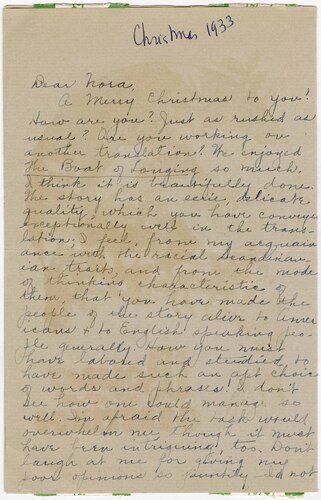 Christmas 1933
Dear Nora,
A Merry Christmas to you!
How are you? Just as rushed as
usual? Are you working on
another translation? We enjoyed
The Boat of Longing so much.
I think it is beautifully done.
The story has an eerie, delicate
quality, which you have conveyed
exceptionally well in the trans-
lation. I feel, from my acquain-
ance with the racial Scandinav-
ian trait, and from the mode
of thinking characteristic of
them, that you have made the
people of the story alive to Amer-
icans & to English speaking peo-
ple generally. How you must
have labored and studied to
have made such an apt choice
of words and phrases! I don't
see how one could manage so
well. I'm afraid the task would
overwhelm me, though it must
have been intriguing, too. Don't
laugh at me for giving my
poor opinions so faintly - I'd not